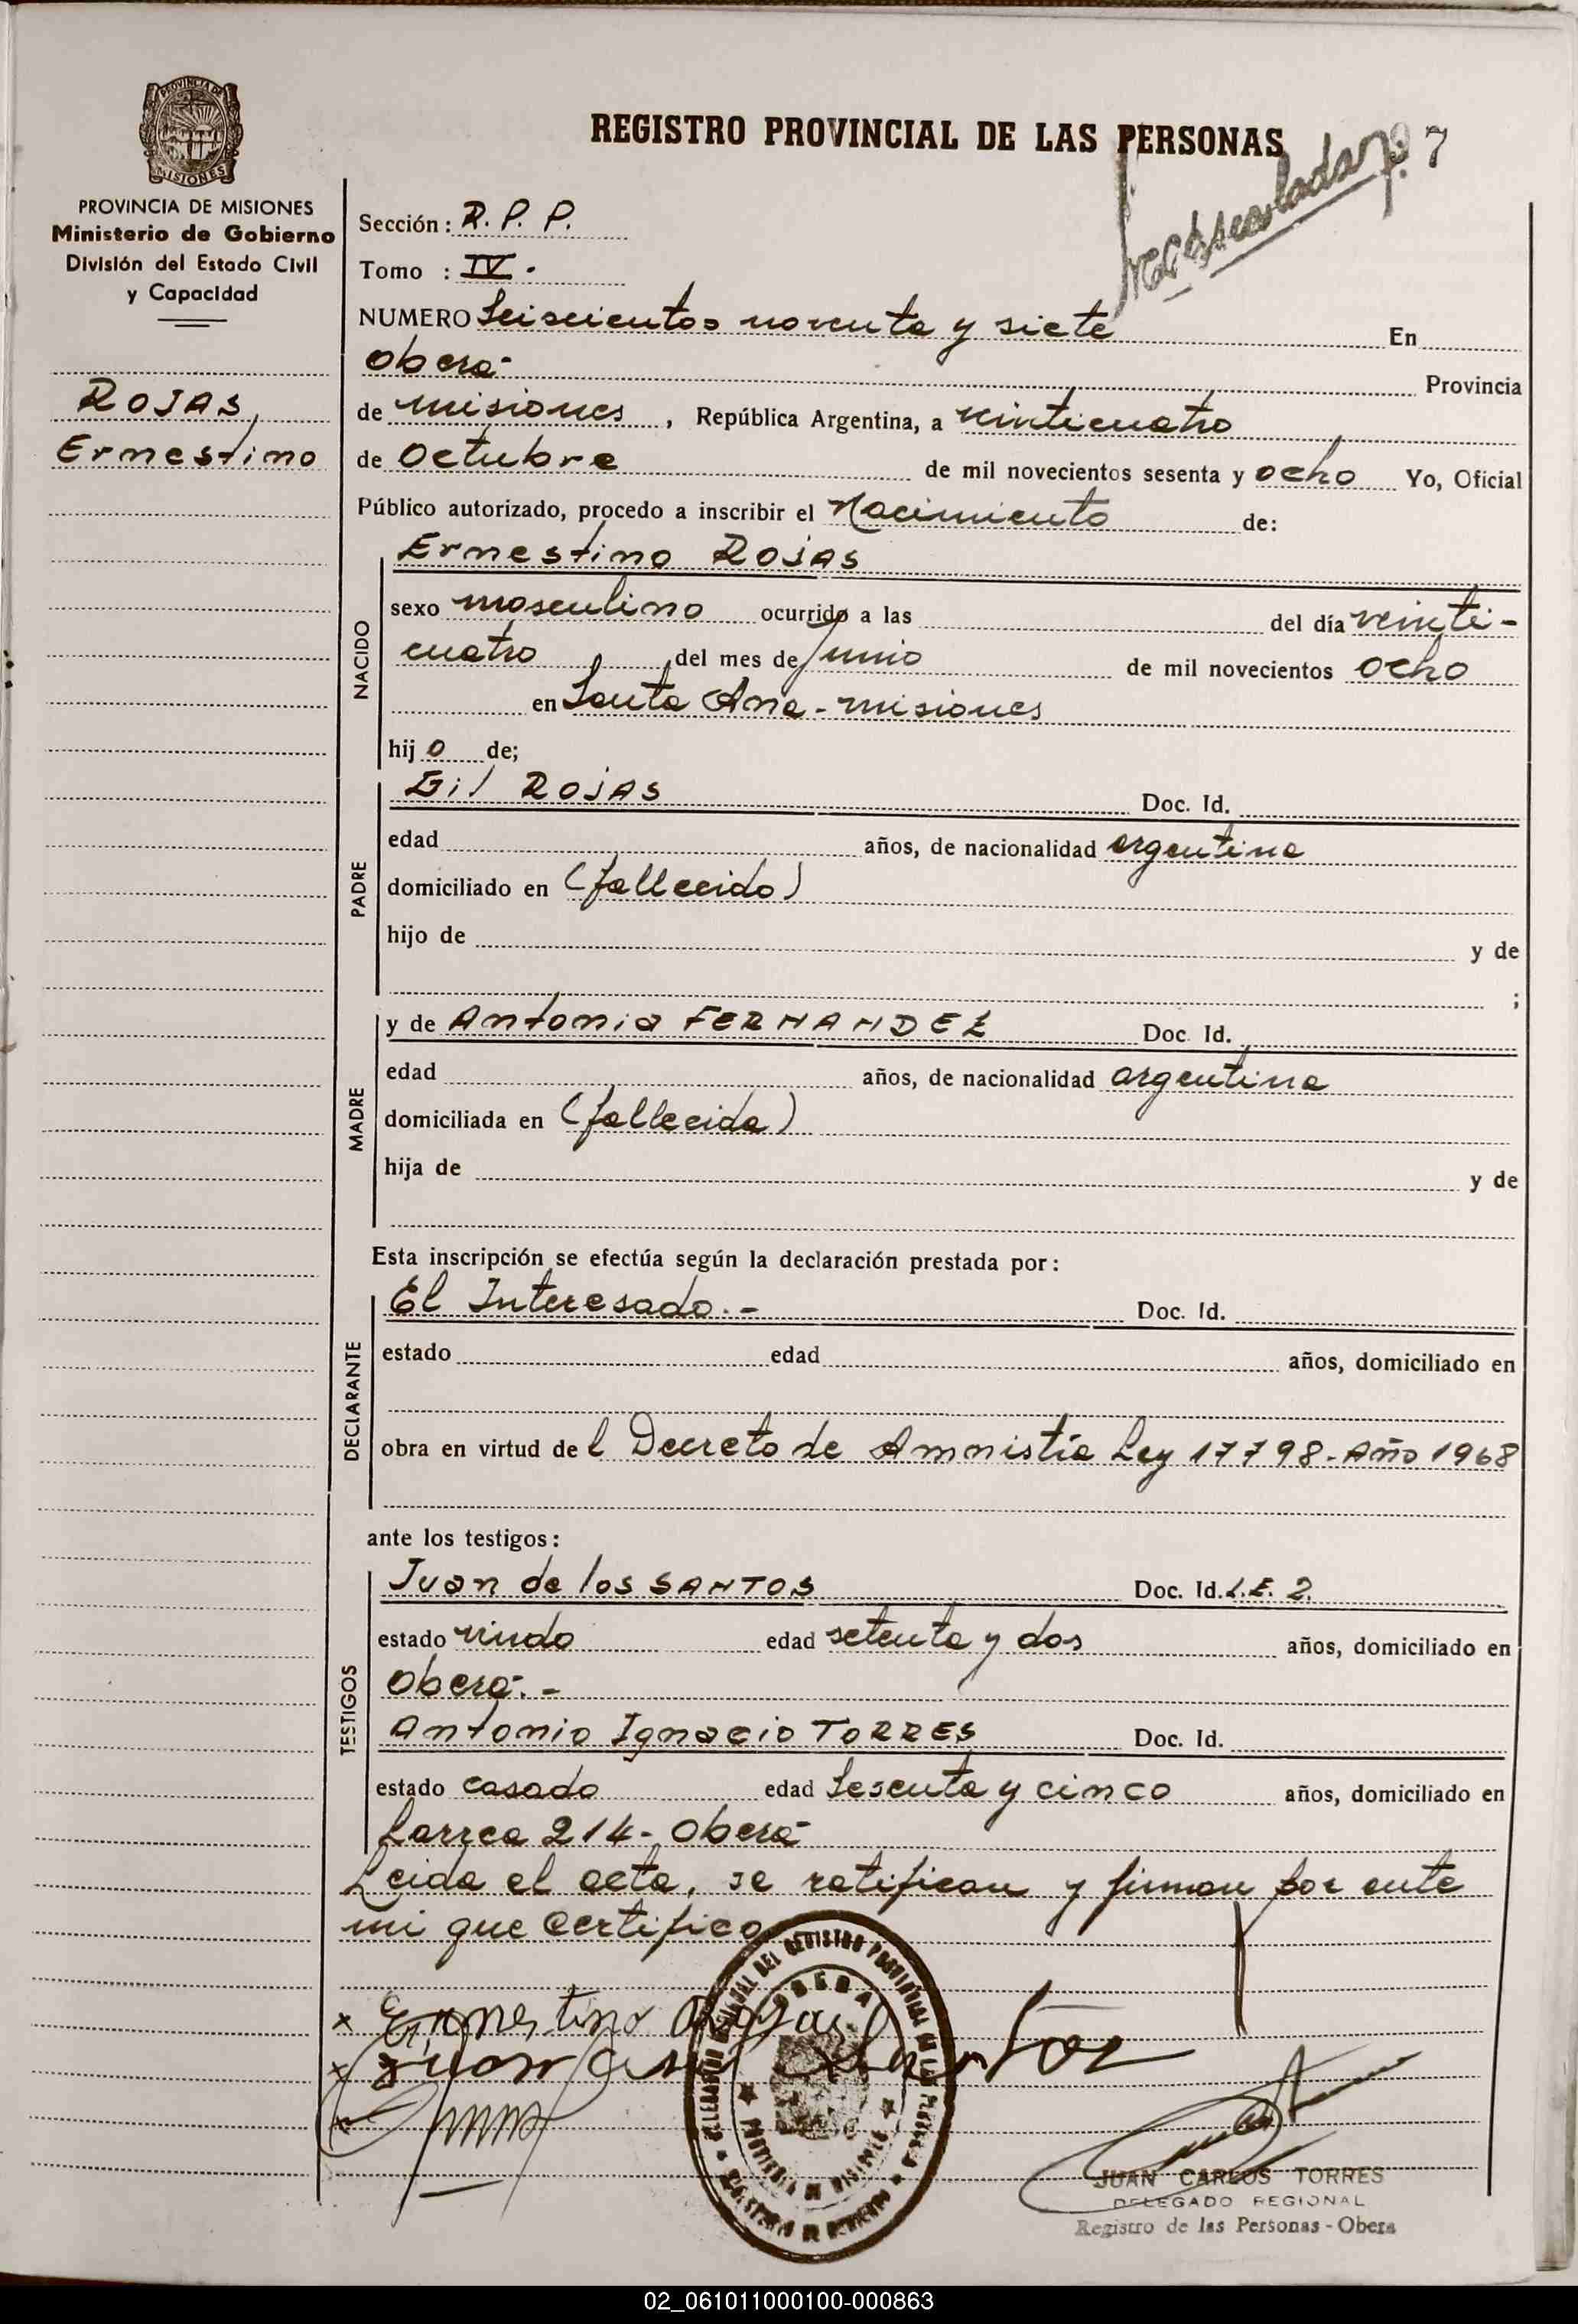 PROVINCIA DE
MISIONES
PROVINCIA DE MISIONES
Ministerio de Gobierno
División del Estado Civil
y Capacidad
ROJAS,
Ernestino
REGISTRO PROVINCIAL DE LAS PERSONAS
97
Sección: R. P. P.
Tomo : IV.
NUMERO Seiscientos noventa y siete En
Oberá Provincia
de misiones, República Argentina, a veinticuatro
de Octubre de mil novecientos sesenta y ocho Yo, Oficial
Público autorizado, procedo a inscribir el Nacimiento de:
Ernestino ROJAS
NACIDO
sexo masculino ocurrido a las del día veinti-
cuatro del mes de Junio de mil novecientos ocho
en Santa Ana - misiones
hijo de;
PADRE
Gil ROJAS Doc. Id.
edad años, de nacionalidad argentina
domiciliado en (fallecido)
hijo de y de
;
MADRE
y de Antonia FERNANDEZ Doc. Id.
edad años, de nacionalidad argentina
domiciliada en (fallecida)
hija de y de
Esta inscripción se efectúa según la declaración prestada por:
DECLARANTE
El Interesado.- Doc. Id.
estado edad años, domiciliado en
obra en virtud del Decreto de Amnistía Ley 17798-Año 1968
ante los testigos:
TESTIGOS
Juan de los SANTOS Doc. Id. L.E. 2.
estado viudo edad setenta y dos años, domiciliado en
Oberá.-
Antonio Ignacio TORRES Doc. Id.
estado casado edad Sesenta y cinco años, domiciliado en
Larrea 214- Oberá
Leida el acta, se ratifican y firman por ante
mi que Certifico
x Ernestino Rojas
x Juan de los Santos
x
OBERA
PROVINCIA DE MISIONES
MINISTERIO DE GOBIERNO
JUAN CARLOS TORRES
DELEGADO REGIONAL
Registro de las Personas - Obera
02_061011000100-000863